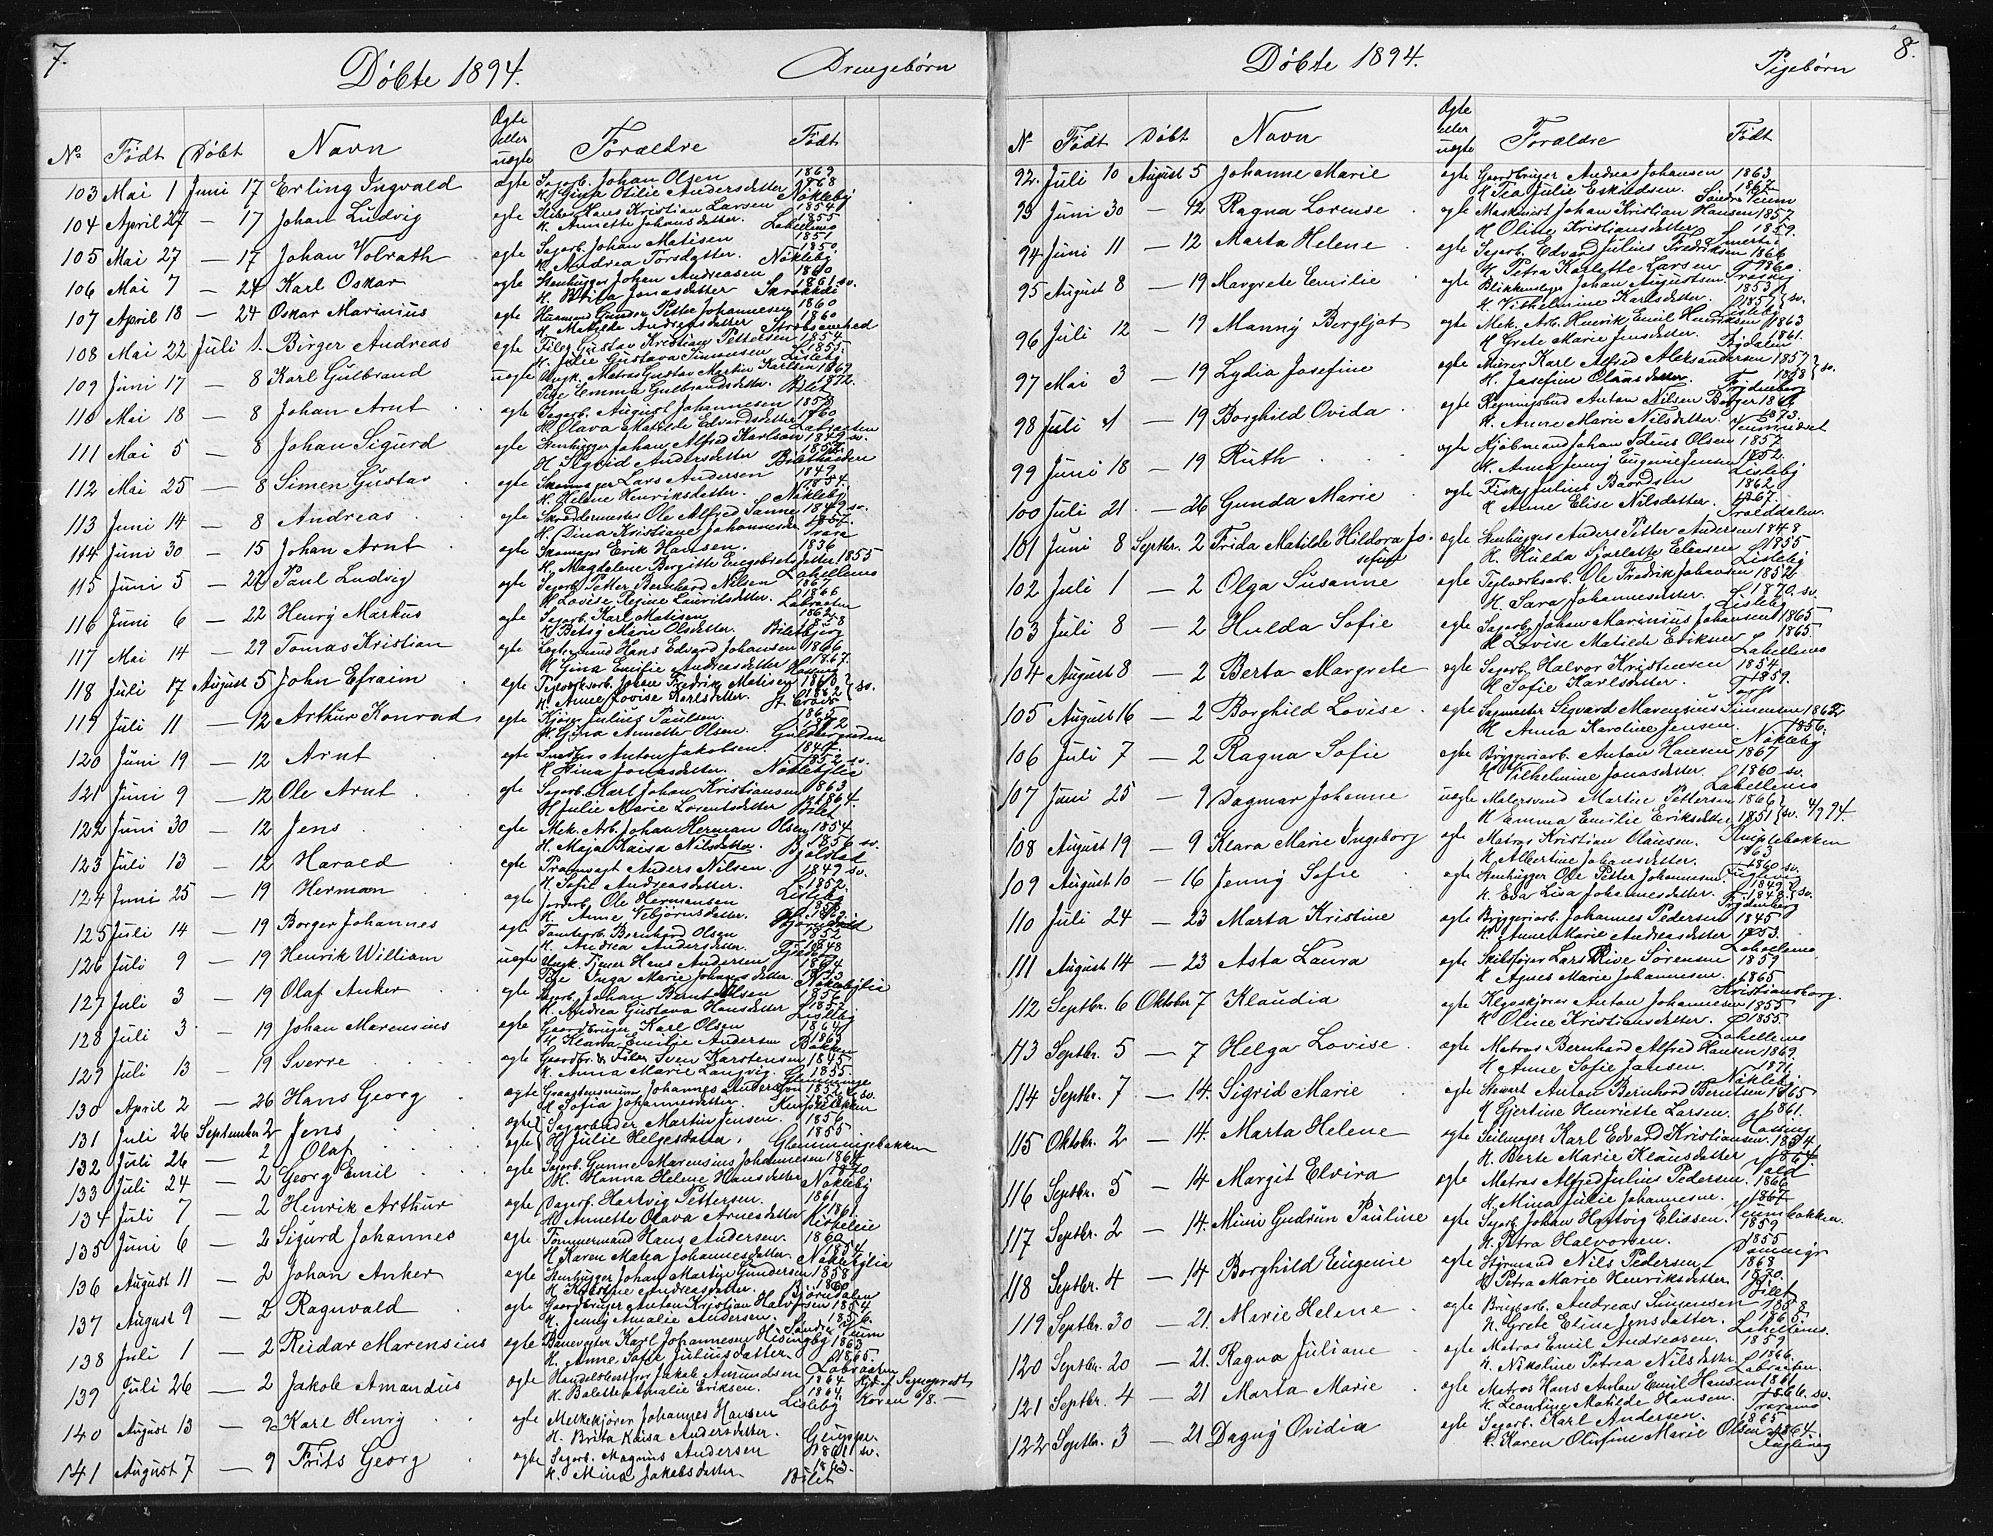 7.
Döbte 1894.
Drengebörn
No Födt Döbt Navn Ægte eller uægte Forældre Födt
103 Mai 1 Juni 17 Erling Ingvald ægte Sagarb. Johan Olsen 1869
K. Gina Otilie Andersdatter 1868 Nökleby
104 April 27 — 17 Johan Ludvig egte Hans Kristian Larsen 1854
K. Annette Johansdatter. 1855 Labellemo
105 Mai 27 — 17 Johan Volrath egte Sagarb. Johan Matisen 1851
K. Andrea Torsdatter. 1850 Nökleby
106 Mai 7 — 24 Karl Oskar egte Stenhugger Johan Andreasen 1860
K. Brita Jonasdatter 1861 sv.
107 April 18 — 24 Oskar Marinius egte Gunder Petter Johannesen 1860
K. Matilde Andreasdatter 1860
108 Mai 22 Juli 1. Birger Andreas egte Filer Gustav Kristian Pettersen 1854
K. Julie Gustava Simonsen 1855. Lisleby
109 Juni 17 — 8 Karl Gulbrand uægte Ungk. Matros Gustav Martin Karlsen 1869
Pige Emma Gulbrandsdatter. 1872. Bilet
110 Mai 18 — 8 Johan Arnt egte Sagarb. August Johannesen 1857
K. Olava Matilde Edvardsdatter 1860 Labraaten
111 Mai 5 — 8 Johan Sigurd egte Stenhugger Johan Alfred Karlson 1849 sv.
K. Sigrid Andersdatter
112 Mai 25 — 8 Simen Gustav egte Skomager Lars Andersen 1849
K. Helene Henriksdatter. 1854. Nökleby
113 Juni 14 — 8 Andreas egte Skræddermester Ole Alfred Sanne 1847 sv.
K. Dina Kristiane Johannesda 1857. Trara
114 Juni 30 — 15 Johan Arnt egte Skomager Erik Hansen. 1836
K. Magdalene Birgitte Engebretsdatter 1855 Labellemo
115 Juni 5 — 22 Paul Ludvig egte Sagarb. Petter Bernhard Nilsen
K. Lovise Regine Lauritsdatter. 1866 Labraaten
116 Juni 6 — 22 Henry Markus egte Sagarb. Karl Matisen 1862
K. Betsy Marie Olsdatter. 1858 Biletbjerg
117 Mai 14 — 29 Tomas Kristian egte Hans Edvard Johansen 1866
K. Gina Emilie Andreasdatter 1867.
118 Juli 17 August 5 John Efraim egte Teglværksarb. Johan Fredrik Matisen 1863 } sv.
K. Anne Lovise Karlsdatter. 1862
119 Juli 11 — 12 Arthur Konrad egte Kjører Julius Paulsen. 1865
K. Gina Annette Olsen.
120 Juni 19 — 12 Arnt egte Anton Jakobsen. 1847.
K. Stina Jonasdatter. 1852 sv. Nöklebylia
121 Juni 9 — 12 Ole Arnt egte Sagarb. Karl Johan Kristiansen 1863
K. Julie Marie Lorentsdatter 1864. Bilet
122 Juni 30 — 12 Jens egte Mek. Arb. Johan Herman Olsen 1854
K. Maja Kaisa Nilsdatter. 1856 sv.
123 Juli 13 — 12 Harald egte Anders Nilsen 1849 sv.
K. Sofie Andreasdatter. 1852. Lisleby
124 Juni 25 — 19 Herman egte Jordarb. Ole Hermansen
K. Anne Vebjörnsdatter.
125 Juli 14 — 19 Borger Johannes egte Tomtarb. Bernhard Olsen 1852
K. Andrea Andersdatter.
126 Juli 9 — 19 Henrik William uægte Ungk. Tjener Hans Andersen
Pige Inga Marie Johansdatter. Nöklebylia
127 Juli 3 — 19 Olaf Anker egte Sagarb. Johan Bernt Olsen 1856
K. Andrea Gustava Hansdatter 1857 Lisleby
128 Juli 3 — 19 Johan Marensius egte Gaardbruger Karl Olsen 1864
K. Klara Emilie Andersen 1863
129 Juli 13 — 19 Sverre egte Gaardbr. & Filer Sven Karstensen 1845
K. Anna Marie Langvig. 1855.
130 April 2 — 26 Hans Georg egte Johannes Anderson 1852 } sv.
K. Sofia Johannesdatter
131 Juli 26 September 2 Jens egte { Sagarbeider Martin Jensen. 1856
132 Juli 26 — 2 Olaf egte { K. Julie Helgesdatter, 1855 Glemmingebakken
133 Juli 24 — 2 Georg Emil egte Sagarb. Gunne Marensius Johannesen 1864
K. Hanna Helene Hansdatter 1870 Nökleby
134 Juli 7 — 2 Henrik Arthur egte Dagarb. Hartvig Pettersen. 1861
K. Annette Olava Arnesdatter 1861
135 Juni 6 — 2 Sigurd Johannes egte Tömmermand Hans Andersen. 1860
K. Karen Matea Johannesdatter. 1854 Nöklebylia
136 August 11 — 2 Johan Anker egte Stenhugger Johan Martin Gundersen 1858
K. Andreasdatter. 1860 Björndalen
137 August 9 — 2 Ragnvald egte Gaardbruger Anton Kristian Halvorsen 1854.
K. Jenny Amalie Andersen. 1856.
138 Juli 1 — 2 Reidar Marensius egte Banevogter Karl Johannesen 1863
K. Anne Sofie Juliusdatter 1865. Labraaten
139 Juli 26 — 2 Jakob Amandus egte Jakob Amundsen 1864
K. Bolette Amalie Eriksen. 1864. Lisleby
140 August 13 — 2 Karl Henry egte Melkekjörer Johannes Hansen
K. Brita Kaisa Andersdatter.
141 August 7 — 9 Frits Georg egte Sagarb. Magnus Andersen 1861 sv.
K. Mina Jakobsdatter. 1863. Bilet
8.
Döbte 1894.
Pigebörn
N. Födt Döbt Navn Ægte eller uægte Forældre Födt
92. Juli 10 August 5 Johanne Marie egte Gaardbruger Andreas Johansen 1863
K. Tea Julie Eskildsen. 1862. Söndre Veum
93 Juni 30 — 12 Ragna Lorense egte Maskinist Johan Kristian Hansen 1857
K. Olitte Kristiansdatter. 1859.
94 Juni 11 — 12 Marta Helene egte Sagarb. Edvard Julius Fredriksen 1866
K. Petra Karlotte Larsen 1860. Traræ
95 August 8 — 19 Margrete Emilie egte Blikkenslager Johan Augustsen. 1853
K. Vilhelmine Karlsdatter. 1857 } sv. Lisleby
96 Juli 12 — 19 Manny Bergljot egte Mek. Arb. Henrik Emil Henriksen 1863
K. Grete Marie Jensdatter. 1861.
97 Mai 3 — 19 Lydia Josefine egte Murer Karl Alfred Aleksandersen 1857 } sv.
K. Josefine Olausdatter. 1858 Frydenberg
98 Juli 4 — 19 Borghild Ovida egte Anton Nilsen Borger
K. Anne Marie Nilsdatter. 1873.
99 Juni 18 — 19 Ruth egte Kjöbmand Johan Julius Olsen 1857
K. Anna Jenny Eugenie Jensen 1852. Lisleby
100 Juli 21 — 26 Gunda Marie egte Fisker Julius Baardsen 1862
K. Anne Elise Nilsdatter. 1867. Trolddalen.
101 Juni 8 Septbr. 2 Frida Matilde Hildora Jo- egte Stenhugger Anders Petter Andersen 1848
sefine K. Hulda Sjarlatte Eliasen 1855 Lisleby
102 Juli 1 — 2 Olga Susanne egte Teglværksarb. Ole Fredrik Johansen 1852
K. Sara Johannesdatter. 1870. sv. Lisleby
103 Juli 8 — 2 Hulda Sofie egte Sagarb. Johan Marinius Johansen 1865
K. Lovise Matilde Eriksen 1865. Labellemo
104 August 8 — 2 Berta Margrete egte Sagarb. Halvor Kristiansen 1854
K. Sofie Karlsdatter. 1859. Torp
105 August 16 — 2 Borghild Lovise egte Sagmester Sigvard Marensius Simensen 1862
K. Anna Karoline Jensen 1856. Nökleby
106 Juli 7 — 2 Ragna Sofie egte Bryggeriarb. Anton Hansen 1867
K. Vilhelmine Jonasdatter. 1860 sv. Labellemo
107 Juni 25 — 9 Dagmar Johanne uægte Malersvend Martin Pettersen 1866
K. Amma Emilie Eriksdatter 1851 } sv. 4/9 94.
108 August 19 — 9 Klara Marie Ingeborg egte Matros Kristian Olausen. 1863
K. Albertine Johansdatter. 1860 sv.
109 August 10 — 16 Jenny Sofie egte Stenhugger Ole Petter Johannesen. 1849
K. Eva Lisa Johannesdatter. 1848 } sv. Frydenberg
110 Juli 24 — 23 Marta Kristine egte Bryggeriarb. Johannes Pedersen 1845
K. Anne Marie Andreasdatter 1853. Labellemo
111 August 14 — 23 Asta Laura egte Skibsförer Lars Rive Sörensen 1859
K. Agnes Marie Johannesen. 1865 Kristiansborg.
112 Septbr. 6 Oktober 7 Klaudia egte Anton Johannesen 1855
K. Oline Kristiansdatter. 1855. Labellemo
113 Septbr. 5 — 7 Helga Lovise egte Matros Bernhard Alfred Hansen 1869.
K. Anne Sofie Jansen. 1871. Nökleby
114 Septbr. 7 — 14. Sigrid Marie egte Stewart Anton Bernhard Berntsen 1865
K. Gjertine Henriette Larsen. 1861.
115 Oktobr. 2 — 14. Marta Helene egte Seilmager Karl Edvard Kristiansen. 1864.
K. Berte Marie Klausdatter 1864.
116 Septbr. 5 — 14 Margit Elvira egte Matros Alfred Julius Pedersen. 1866
K. Mina Julie Johannesen. 1867
117 Septbr. 2 — 14. Mimi Gudrun Pauline egte Sagarb. Johan Hartvig Eliasen. 1859
K. Petra Halvorsen. 1855
118 Septbr. 4 — 14 Borghild Eugenie egte Styrmand Nils Pedersen 1868
K. Petra Marie Henriksdatter 1870. Bilet
119 Septbr. 30 — 21. Marie Helene egte Brugsarb. Andreas Simensen 1858
K. Grete Eline Jensdatter. 1865. Labellemo.
120 Septbr. 20 — 21. Ragna Juliane egte Matros Emil Andreasen. 1859
K. Nikoline Petrea Nilsdatter 1866. Labraaten.
121 Septbr. 4 — 21 Marta Marie egte Matros Hans Anton Emil Hansen 1861
K. Leontine Matilde Hansen. 1866. sv. Traramo
122 Septbr. 3 — 21 Dagny Ovidia egte Sagarb. Karl Andersen. 1865
K. Karen Olufine Marie Olsen 1864.